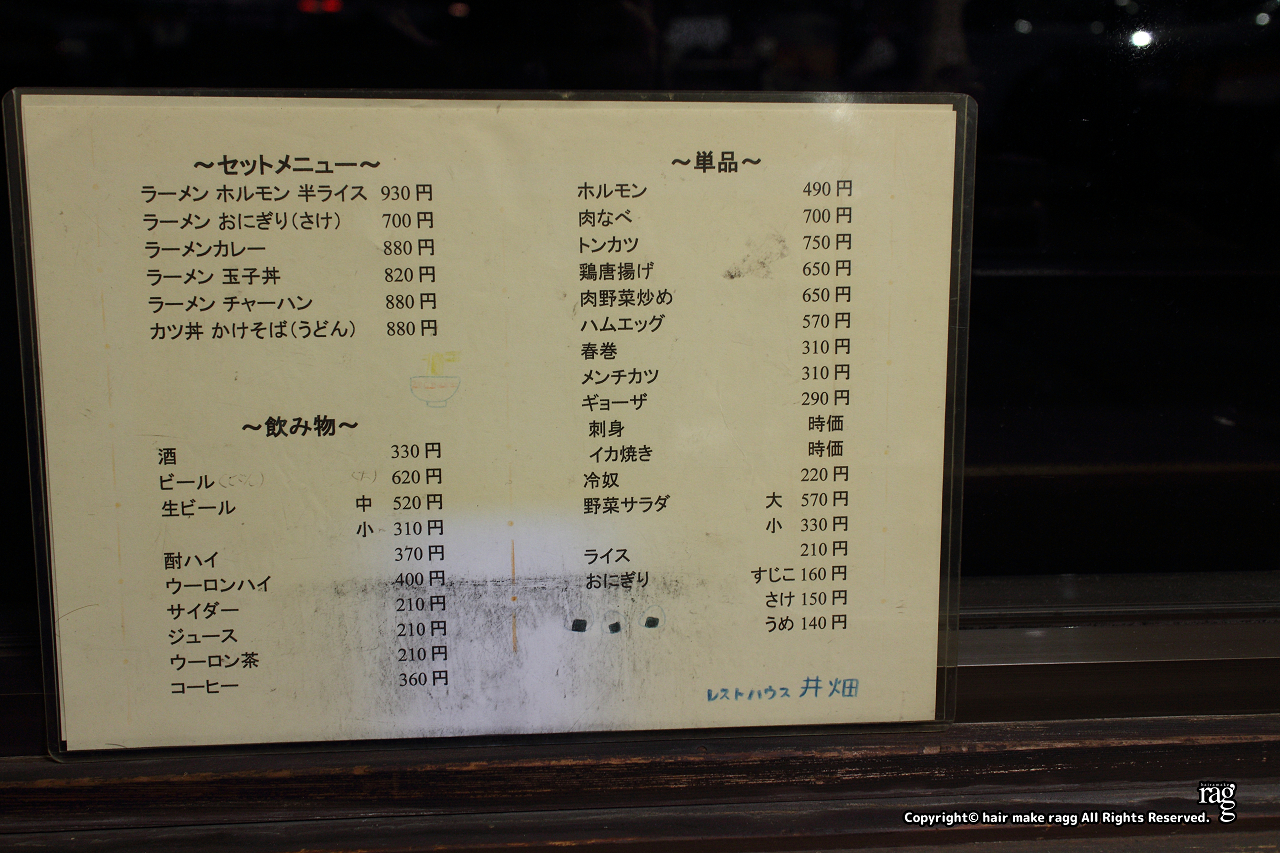 ～セットメニュー～
ラーメン ホルモン 半ライス 930 円
ラーメン おにぎり(さけ) 700 円
ラーメンカレー 880 円
ラーメン 玉子丼 820 円
ラーメン チャーハン 880 円
カツ丼 かけそば(うどん) 880 円
～飲み物～
酒 330 円
ビール 620 円
生ビール 中 520 円
小 310 円
酎ハイ 370 円
ウーロンハイ 400 円
サイダー 210 円
ジュース 210 円
ウーロン茶 210 円
コーヒー 360 円
～単品～
ホルモン 490 円
肉なべ 700 円
トンカツ 750 円
鶏唐揚げ 650 円
肉野菜炒め 650 円
ハムエッグ 570 円
春巻 310 円
メンチカツ 310 円
ギョーザ 290 円
刺身 時価
イカ焼き 時価
冷奴 220 円
野菜サラダ 大 570 円
小 330 円
ライス 210 円
おにぎり すじこ 160 円
さけ 150 円
うめ 140 円
レストハウス 井畑
rag
Copyright© hair make ragg All Rights Reserved.